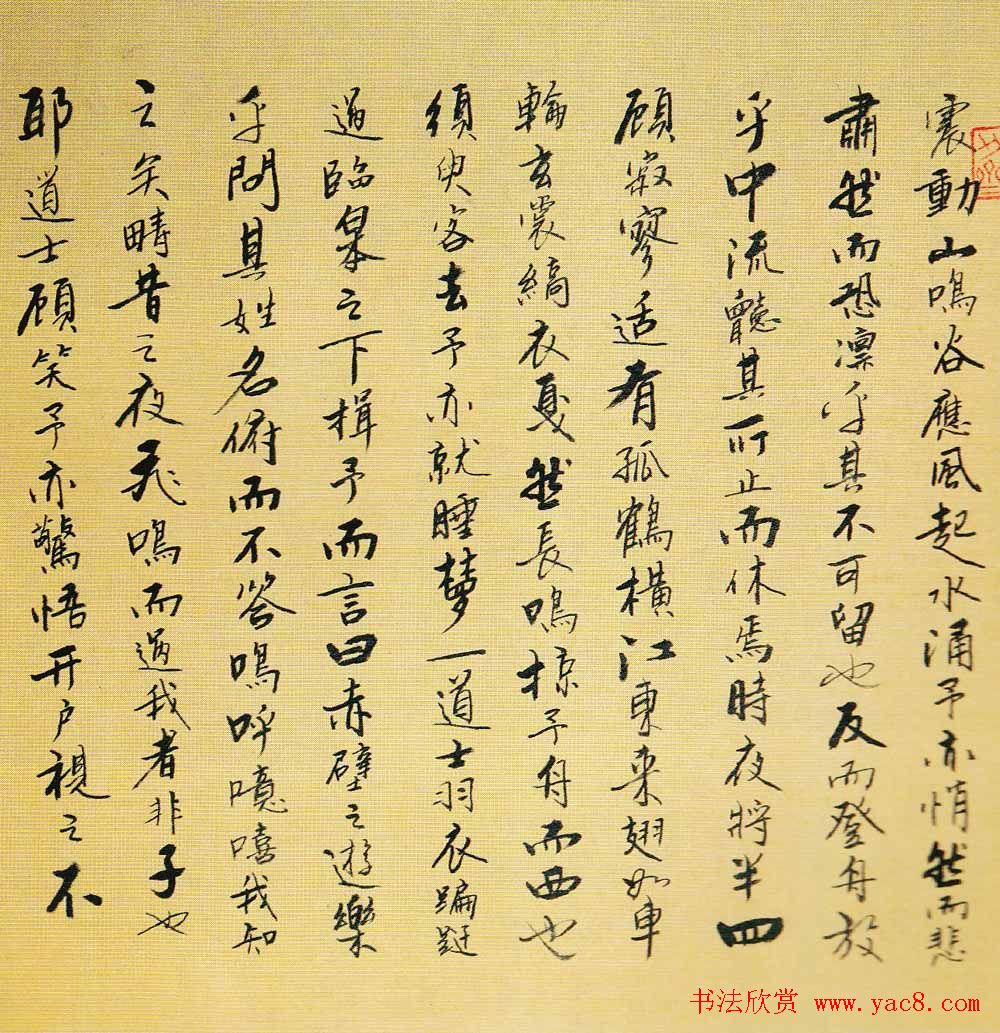 震動山鳴谷應風起水涌予亦悄然而悲
肅然而恐凛乎其不可留也反而登舟放
乎中流聽其所止而休焉時夜將半四
顧寂寥适有孤鶴橫江東来翅如車
輪玄裳縞衣戛然長鳴掠予舟而西也
須臾客去予亦就睡夢一道士羽衣蹁跹
過臨皋之下揖予而言曰赤壁之遊樂
乎問其姓名俯而不答嗚呼噫嘻我知
之矣疇昔之夜飛鳴而過我者非子也
耶道士顧笑予亦驚悟开户視之不
书法欣赏 www.yac8.com